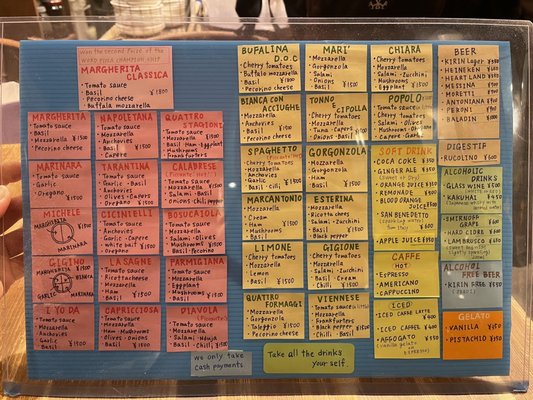 Won the second prize of the
WORLD PIZZA CHAMPION SHIP
MARGHERITA
CLASSICA
・Tomato sauce
・Basil
・Pecorino cheese
・Buffalo mozzarella
¥1800
MARGHERITA
Tomato sauce
Mozzarella
Basil
Pecorino cheese
¥1500
NAPOLETANA
・Tomato sauce
・Mozzarella
・Anchovies
・Basil
・Capere
¥1500
QUATTRO
STAGIONI
・Tomato sauce
・Mozzarella ¥1500
・Basil・Ham・Eggplant
・Mushrooms
・Frankfurters
MARINARA
・Tomato sauce
・Garlic
・Oregano
TARANTINA
・Tomato sauce
・Garlic・Basil
・Anchovies
・Olives・Capers
・Oregano
¥1500
CALABRESE
・Tomato sauce
・Mozzarella ¥1500
・Salami・Basil
・onions chili pepper
MICHELE ¥1500
MARGHERITA
MARINARA
CICINIELLI
・Tomato sauce
・Mozzarella
・Garlic・Capere
・white bait
・Oregano
¥1500
BOSUCAIOLA
・Tomato sauce
・Mozzarella
・Salami・Olives
・Mushrooms ¥1500
・Basil
GIGINO ¥1500
MARGHERITA
GARLIC
MARINARA
LASAGNE
・Tomato sauce
・Ricotta cheese
・Mozzarella
・Ham
・Basil
¥1500
PARMIGIANA
・Tomato sauce
・Mozzarella
・Eggplant
・Mushrooms
・Basil
¥1500
I YO DA
・Tomato sauce
・Mozzarella
・Anchovies
・Garlic
・Basil
¥1500
CAPRICCIOSA
・Tomato sauce
・Mozzarella
・Ham・Mushrooms
・Olives・Onions
・Basil
¥1500
DIAVOLA
・Tomato sauce
・Mozzarella
・Salami・Nduja
・Basil・Chili
¥1500
We only take
cash payments.
BUFALINA
D.O.C
・Cherry tomatoes
・Buffalo mozzarella
・Basil
・Pecorino cheese
MARI'
・Mozzarella
・Gorgonzola
・Salami
・Onions
・Basil
¥1500
CHIARA
・Cherry tomatoes
・Mozzarella
・Salami・Zucchini
・Mushrooms
・Eggplant
¥1500
BIANCA CON
ACCIUGHE
・Mozzarella
・Anchovies
・Basil
¥1500
TONNO
CIPOLLA
・Cherry tomatoes
・Mozzarella
・Tuna・Capers
・Onions・Basil
¥1500
POPOLO
・Tomato sauce
・Mozzarella
・Salami・Olives
・Mushrooms・Onions
SPAGHETTO
・Cherry tomatoes
・Mozzarella
・Anchovies
・Garlic・chili
¥1500
GORGONZOLA
・Mozzarella
・Gorgonzola
・Ham
・Basil
¥1500
MARCANTONIO
・Mozzarella
・Cream
・Ham
・Mushrooms
・Basil
¥1500
ESTERINA
・Mozzarella
・Ricotta cheese
・Salami・Zucchini
・Basil
・Black pepper
¥1500
LIMONE
・Mozzarella
・Lemon
・Basil
¥1500
GIGIONE
・Mozzarella
・Salami・Zucchini
・Basil・Cream
・Chilli
¥1500
QUATTRO
FORMAGGI
・Mozzarella
・Gorgonzola
・Taleggio
・Pecorino cheese
¥1500
VIENNESE
・Tomato sauce
・Mozzarella
・Frankfurters
・Black pepper
・Chilli
¥1500
Take all the drinks
your self.
SOFT DRINK
・COCA COKE ¥350
・GINGER ALE ¥350
・ORANGE JUICE ¥350
・LEMONADE ¥350
・BLOOD ORANGE
JUICE
・SAN BENEDETTO
・APPLE JUICE ¥350
CAFFE
HOT
・ESPRESSO
・AMERICANO
・CAPPUCCINO
ICED
・ICED CAFFE LATTE
¥400
・ICED CAFFEE ¥400
・AFFOGATO ¥550
BEER
・KIRIN Lager
・HEINEKEN
・HEARTLAND
・MESSINA
・MORETTI
・ANTONIANA
・PERONI
・BALADIN
DIGESTIF
・RUCOLINO ¥600
ALCOHOLIC
DRINKS
・GLASS WINE ¥550
・KAKUHAI ¥450
・SMIRNOFF ¥600
・HARD CIDRE ¥600
・LAMBRUSCO
ALCOHOL
FREE BEER
・KIRIN FREE ¥550
GELATO
・VANILLA ¥350
・PISTACHIO ¥350